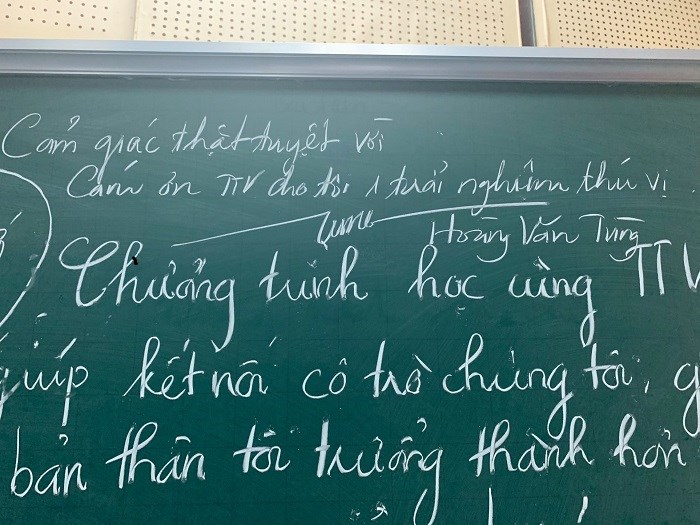 Cảm giác thật tuyệt vời
Cám ơn TTV cho tôi 1 trải nghiệm thú vị
Hoàng Văn Tùng
Chương trình học cùng TTV
giúp kết nối cô trò chúng tôi, g
bản thân tôi trưởng thành hơn